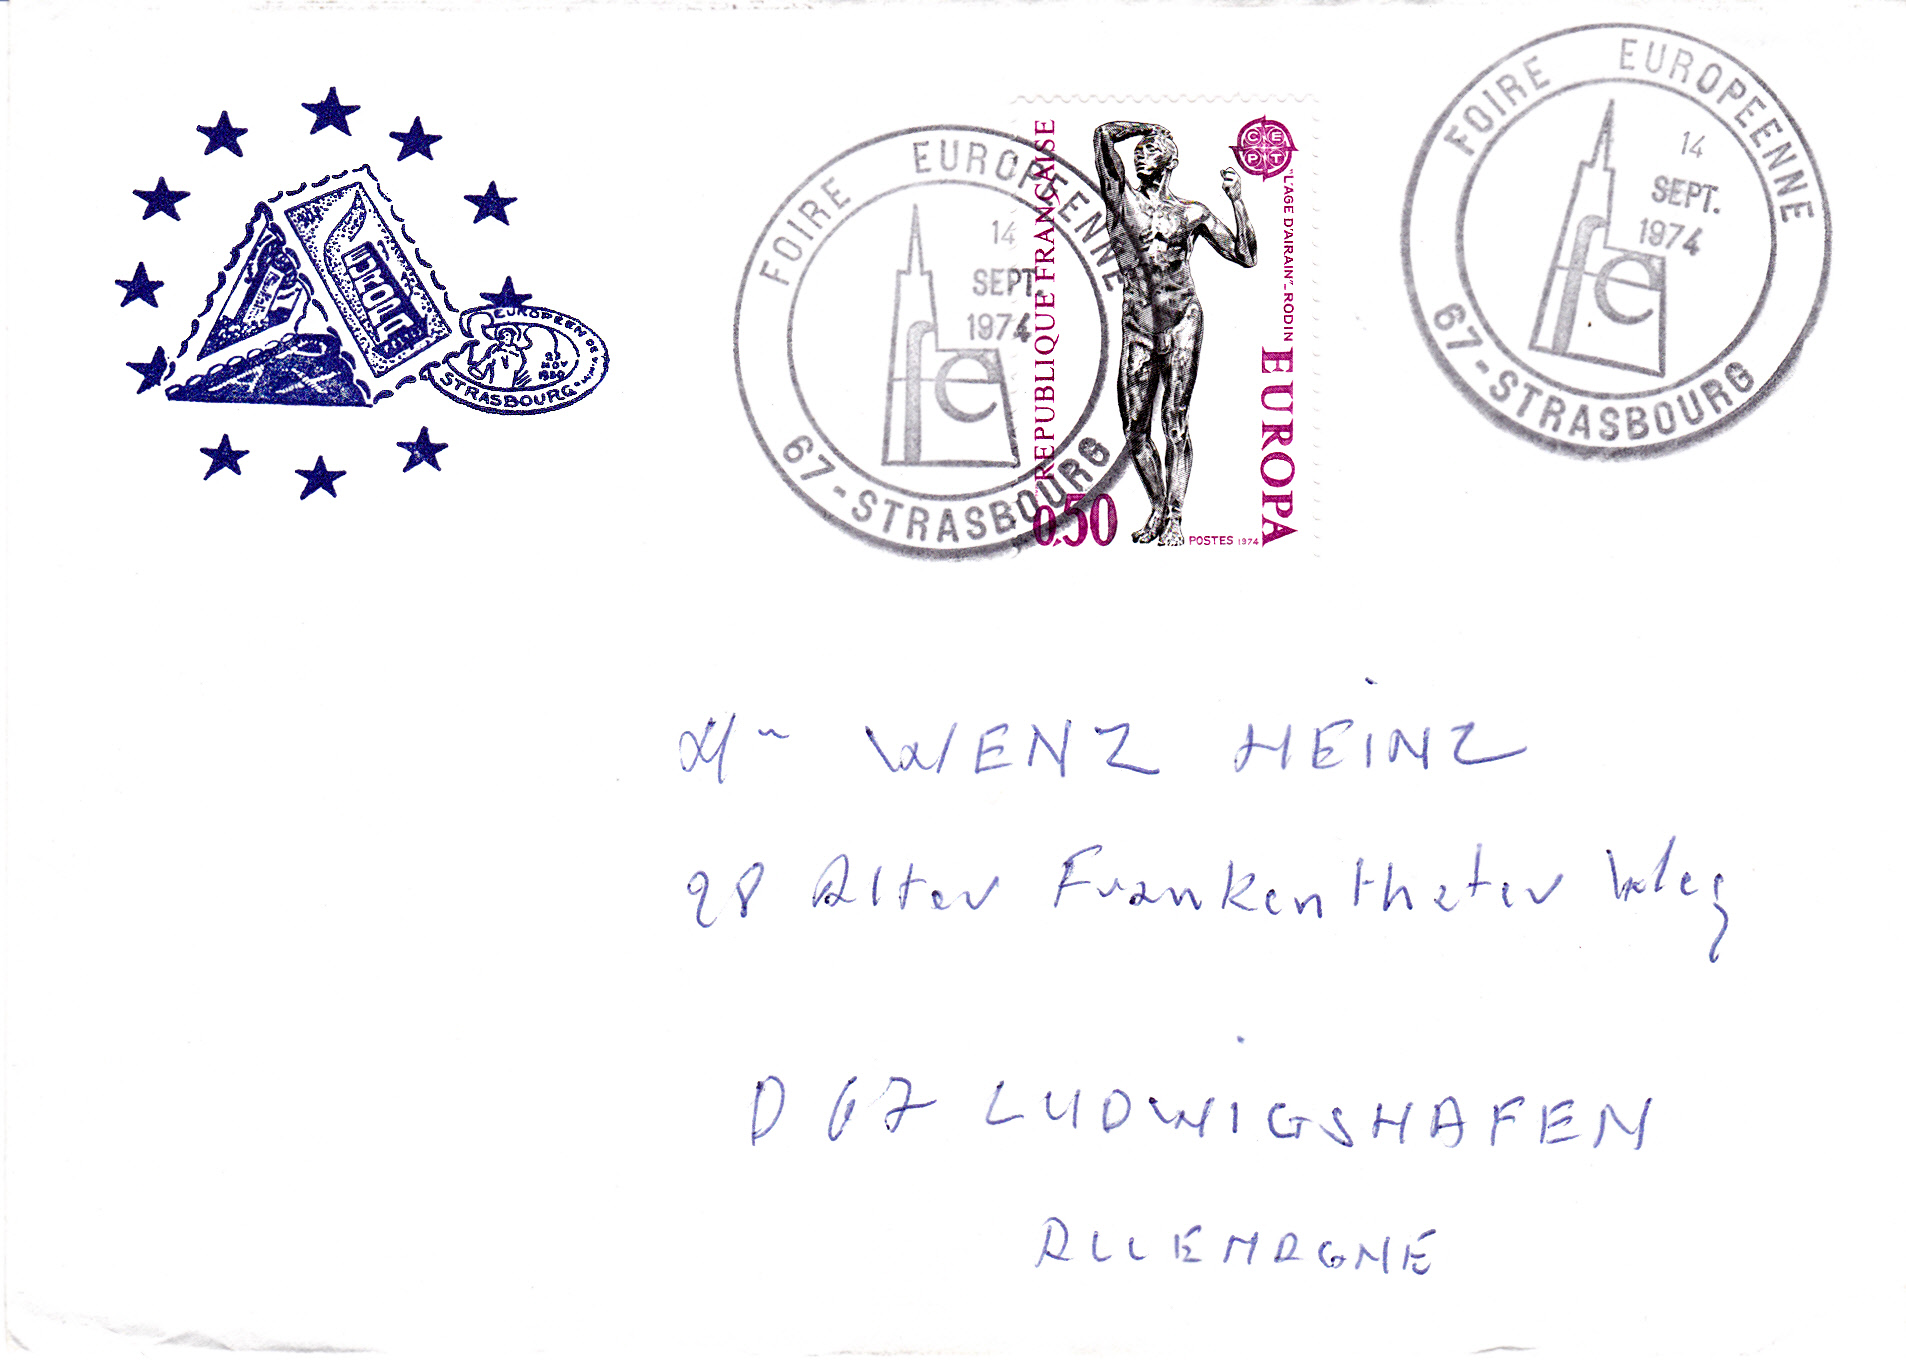 EUROPEEN DE
23
NOV
1980
STRASBOURG
FOIRE EUROPEENNE
14
SEPT.
1974
fe
67-STRASBOURG
REPUBLIQUE FRANÇAISE
0,50
CEPT
"L'AGE D'AIRAIN"_RODIN
EUROPA
POSTES 1974
FOIRE EUROPEENNE
14
SEPT.
1974
fe
67-STRASBOURG
Mr WENZ HEINZ
28 Alter Frankentheter Weg
D 67 LUDWIGSHAFEN
ALLEMAGNE